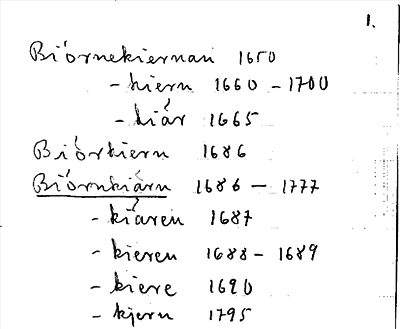 1.
Biörnekiernan 1650
- kiern 1660 - 1700
- kiár 1665
Biörkiern 1686
Biörnkiärn 1686 - 1777
- kiären 1687
- kieren 1688 - 1689
- kiere 1690
- kjern 1795